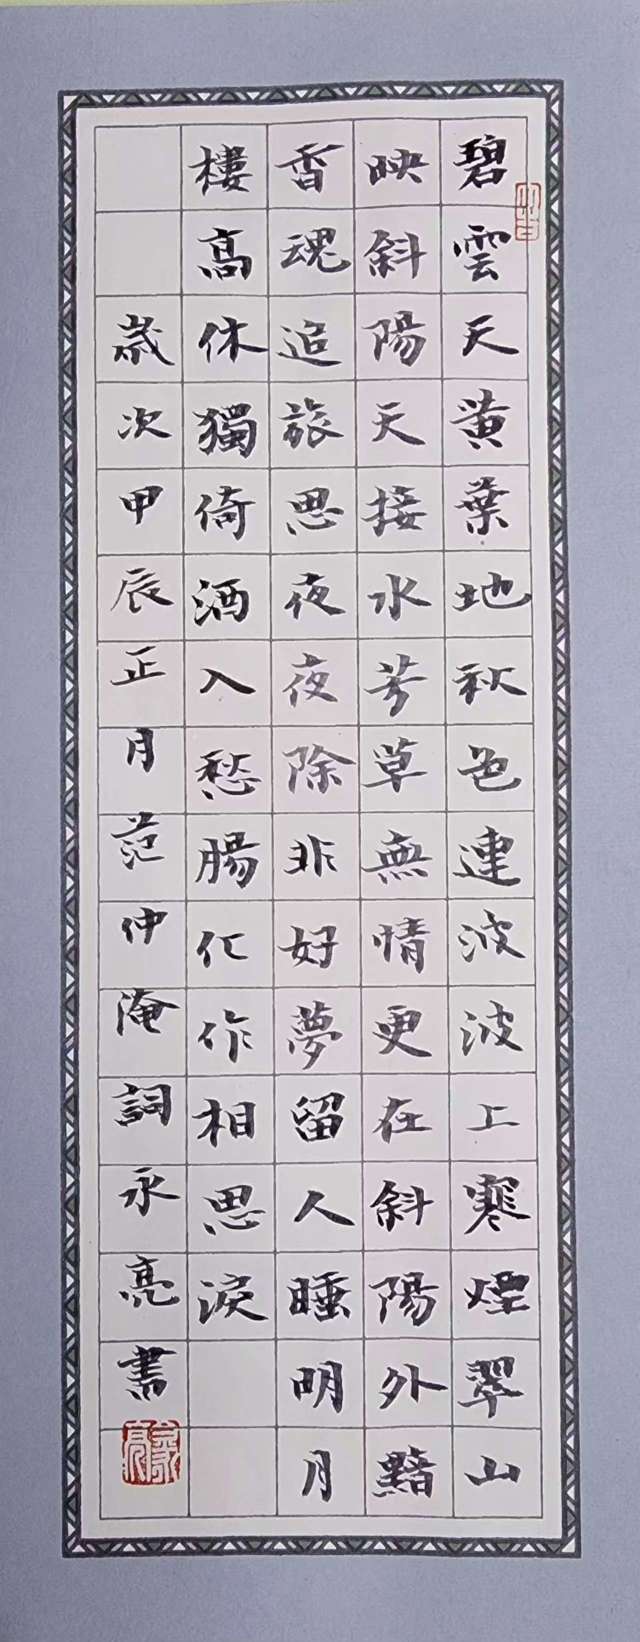 碧雲天黄葉地秋色連波波上寒煙翠山
映斜陽天接水芳草無情更在斜陽外黯
香魂追旅思夜夜除非好夢留人睡明月
樓高休獨倚酒入愁腸化作相思淚
歲次甲辰正月范仲淹詞永亮書